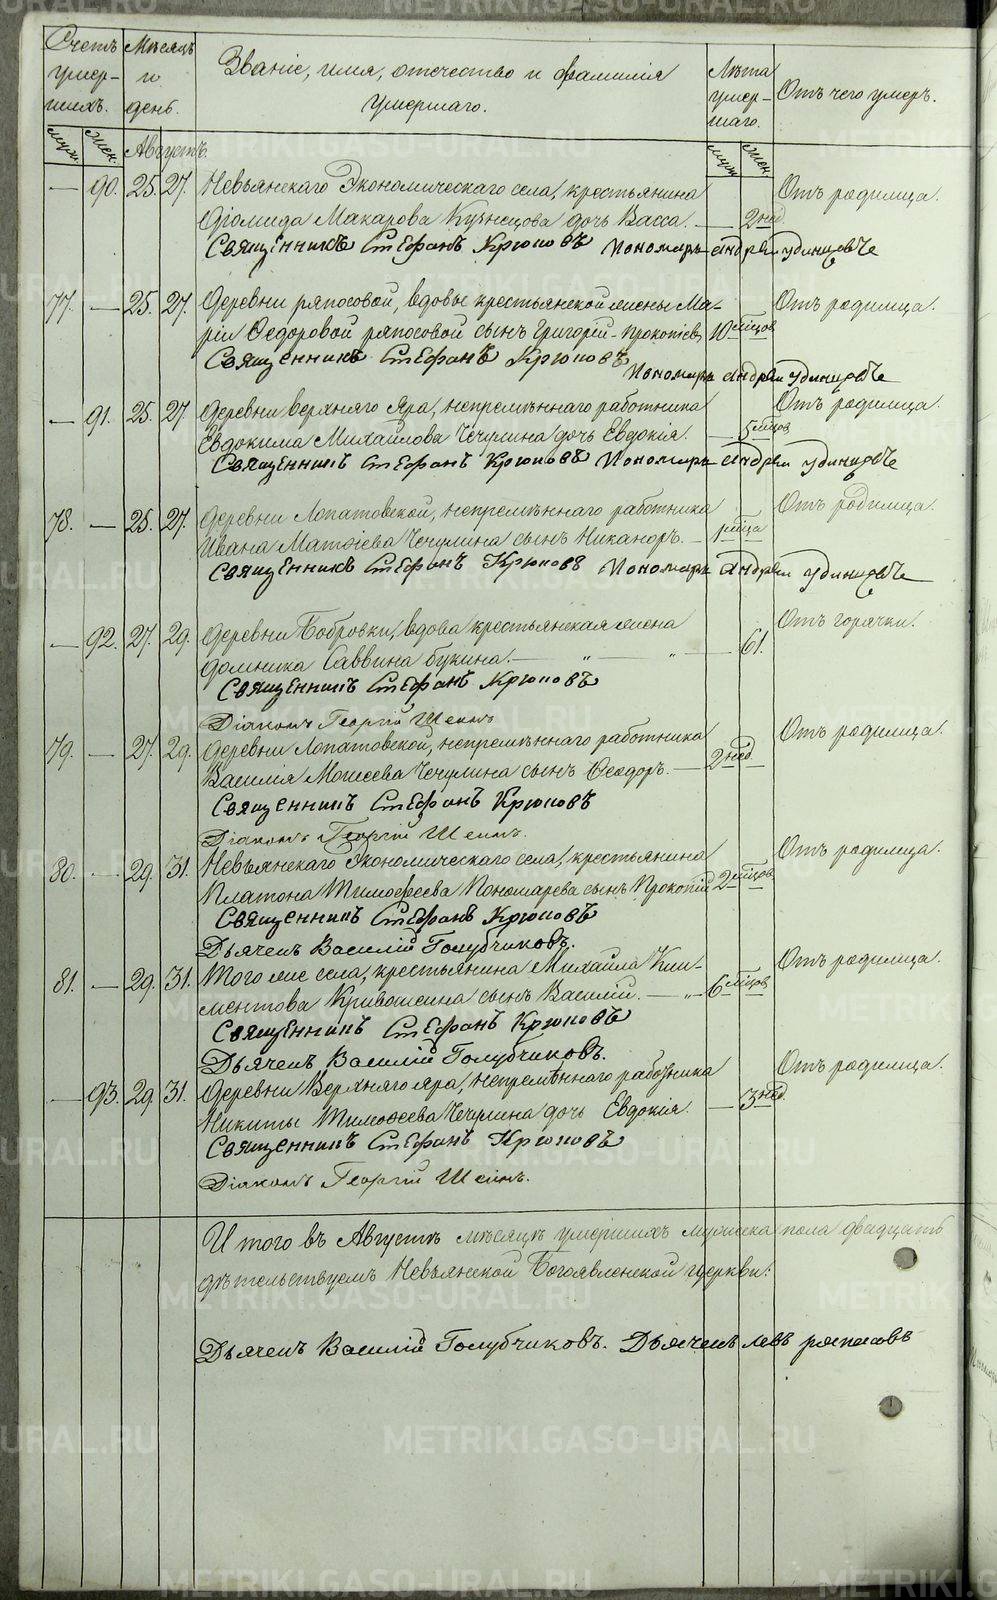 Счетъ умер-шихъ.
Мѣсяцъ и день.
Званіе, имя, отечество и фамилія умершаго.
Лѣта умер-шаго.
Отъ чего умеръ.
муж. жен. Августъ. муж. жен.
— 90. 25. 27. Невьянскаго Экономическаго села, крестьянина Отъ родимца.
Діомида Макарова Кузнецова дочь Васса. — 2 нед.
Священникъ Стефанъ Крюковъ Пономарь Андрей Удинцовъ
77. — 25. 27. Деревни ряпосовой, вдовы крестьянской жены Ма- Отъ родимца.
ріи Ѳедоровой ряпосовой сынъ Григорій Прокопіевъ 10 мѣцов
Священникъ Стефанъ Крюковъ
Пономарь Андрей Удинцовъ
— 91. 25. 27. Деревни верхняго Яра, непремѣннаго работника Отъ родимца.
Евдокима Михайлова Чечулина дочь Евдокія. — 5 мѣцов
Священникъ Стефанъ Крюковъ Пономарь Андрей Удинцовъ
78. — 25. 27. Деревни Лопатовской, непремѣннаго работника Отъ родимца.
Ивана Матѳіева Чечулина сынъ Никаноръ. — 1 мѣца
Священникъ Стефанъ Крюковъ Пономарь Андрей Удинцовъ
— 92. 27. 29. Деревни Бобровки, вдова крестьянская жена Отъ горячки.
Домника Саввина букина. — " — " — 61.
Священникъ Стефанъ Крюковъ
Діаконъ Георгій Шеинъ
79. — 27. 29. Деревни Лопатовской, непремѣннаго работника Отъ родимца.
Василія Моисеева Чечулина сынъ Ѳеодоръ. — 2 нед.
Священникъ Стефанъ Крюковъ
Діаконъ Георгій Шеинъ.
80. — 29. 31. Невьянскаго Экономическаго села, крестьянина Отъ родимца.
Платона Тимофеева Пономарева сынъ Прокопій 2 мѣцов
Священникъ Стефанъ Крюковъ
Дьячекъ Василій Голубчиковъ.
81. — 29. 31. Того же села, крестьянина Михайла Кли- Отъ родимца.
ментова Кривошеина сынъ Василій. — " — 6 мѣцов
Священникъ Стефанъ Крюковъ
Дьячекъ Василій Голубчиковъ.
— 93. 29. 31. Деревни Верхняго яра, непремѣннаго работника Отъ родимца.
Никиты Тимоѳеева Чечулина дочь Евдокія. — 3 нед.
Священникъ Стефанъ Крюковъ
Діаконъ Георгій Шеинъ.
И того въ Августѣ мѣсяцѣ умершихъ мужеска пола двадцать
дѣтельствуемъ Невьянской Богоявленской церкви:
Дьячекъ Василій Голубчиковъ. Дьячекъ Левъ ряпасовъ
METRIKI.GASO-URAL.RU